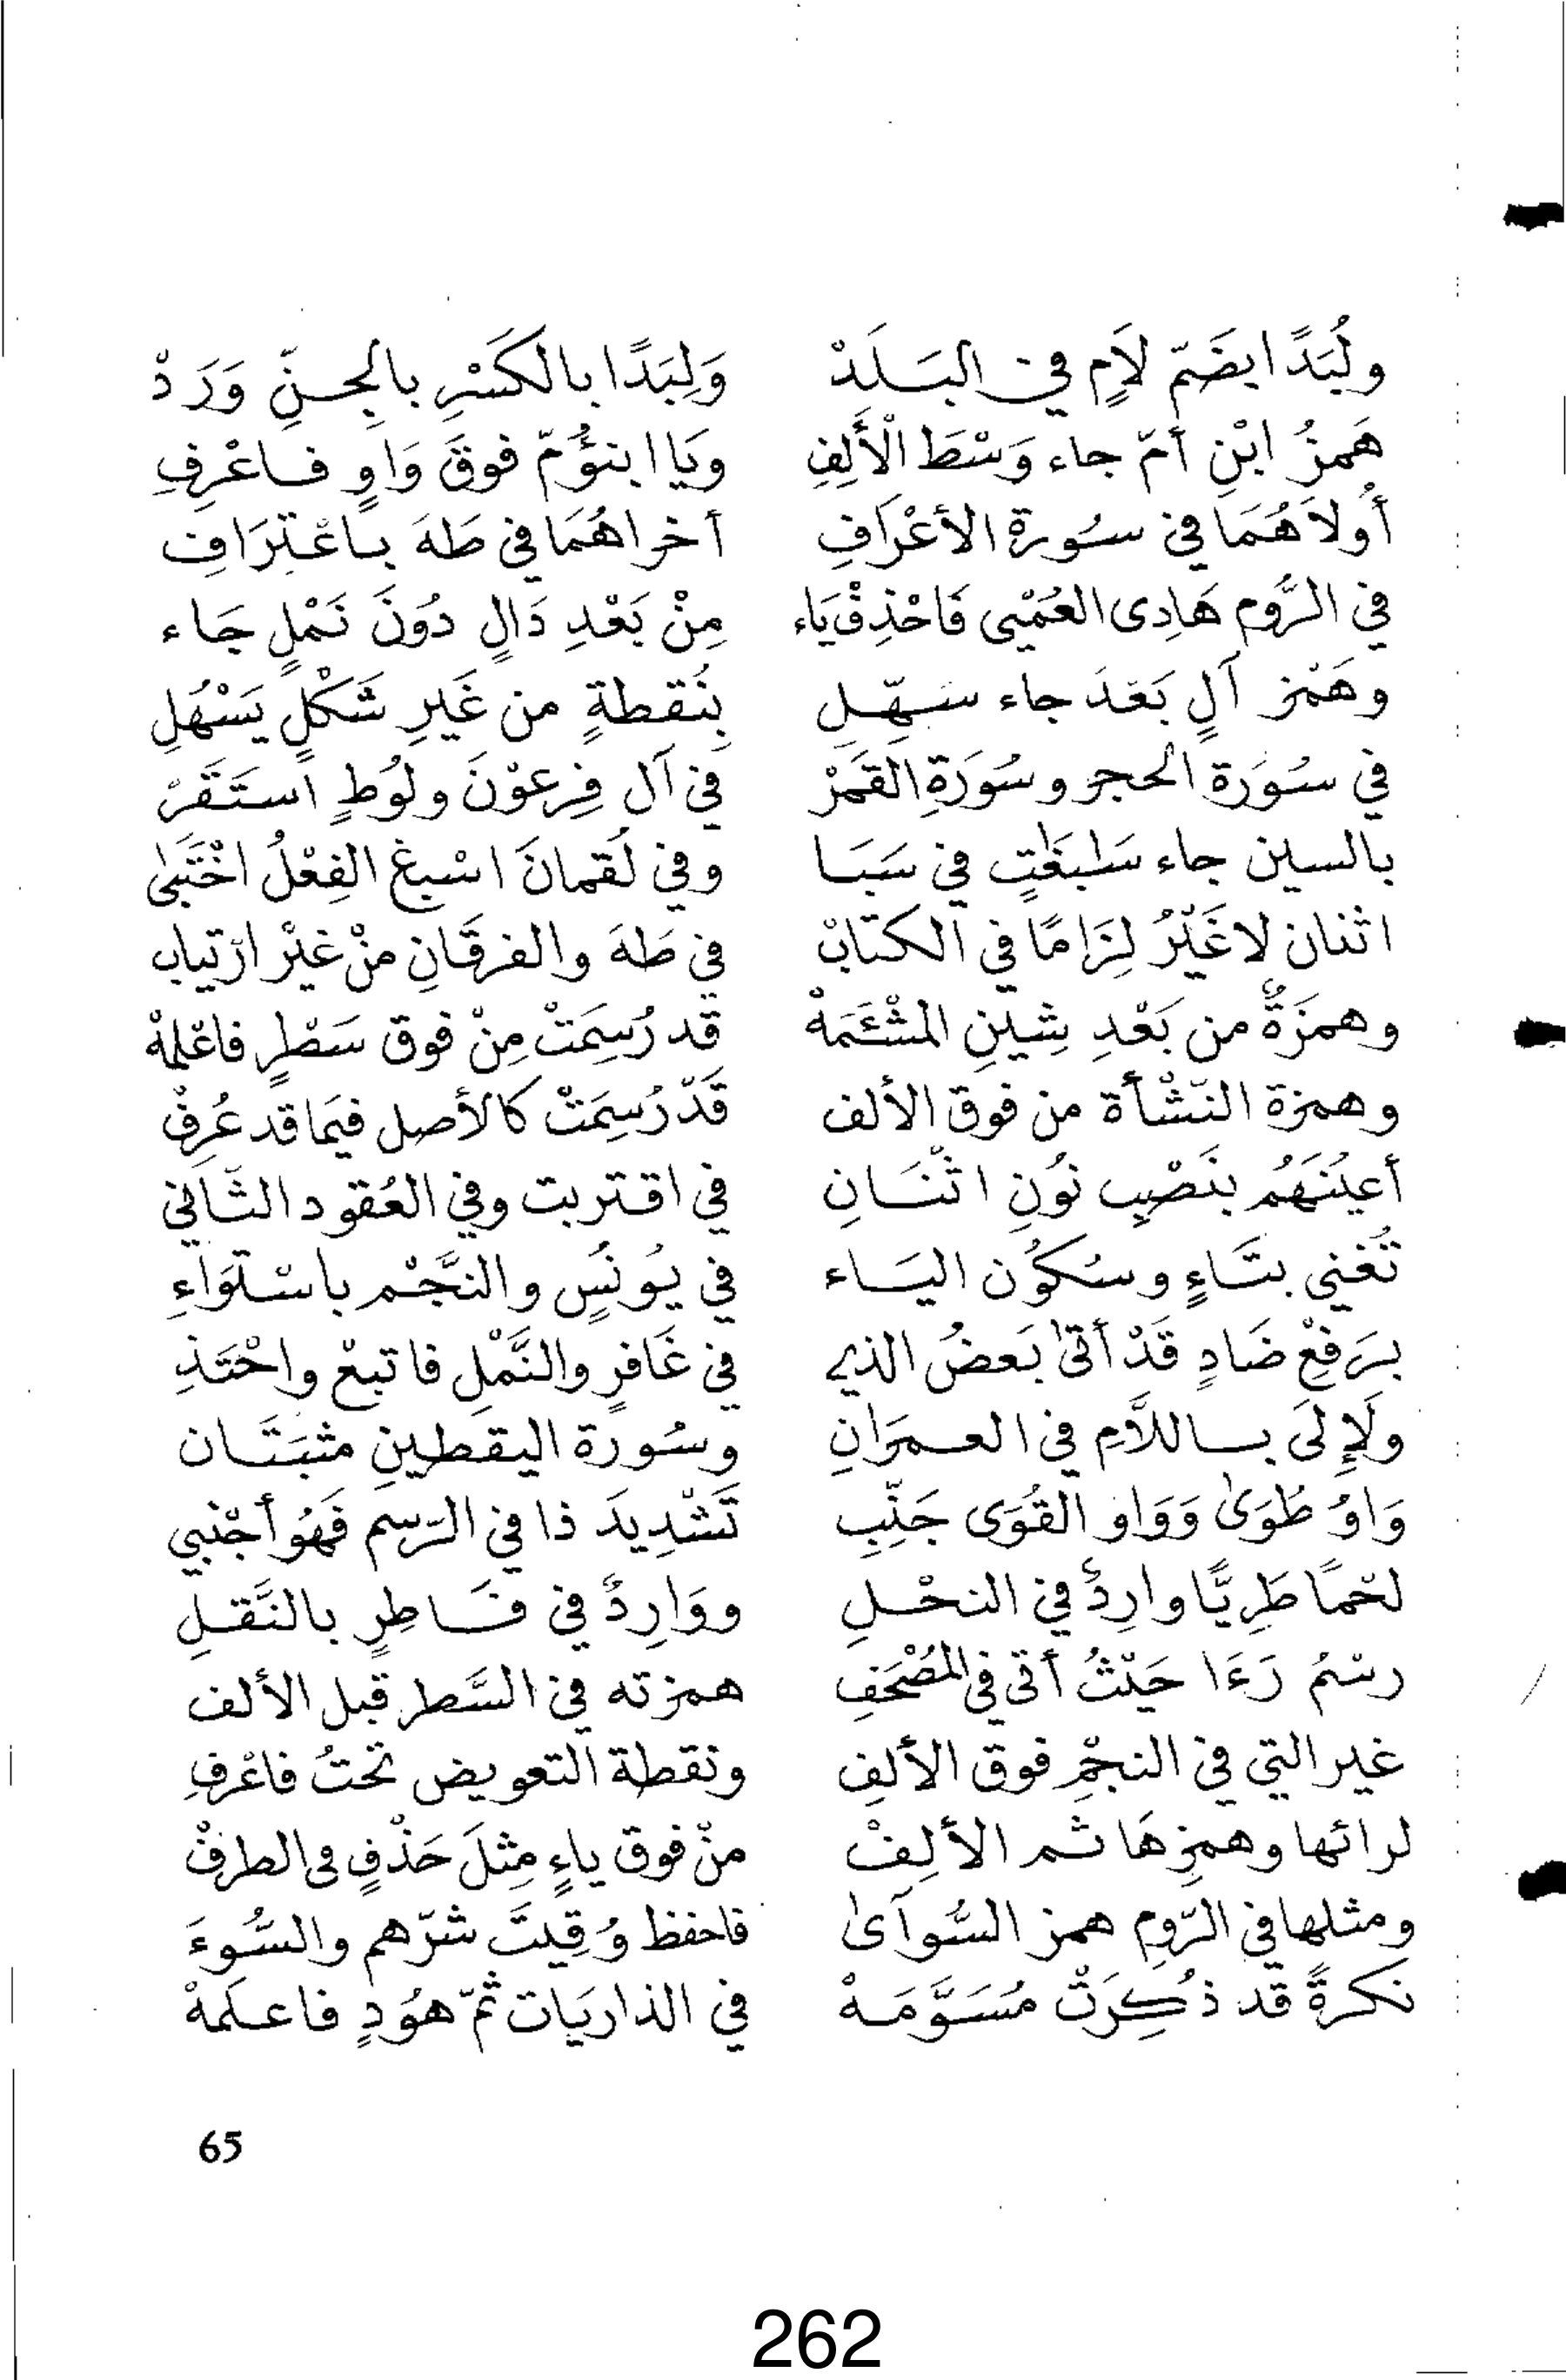 ولُبَدًا بضَمّ لاَمٍ في البَلَدْ وَلِبَدًا بالكَسْرِ بالجِنِّ وَرَدْ
هَمزُ ابْنِ أمّ جاء وَسْطَ الْأَلِفِ ويَا ابنؤُمّ فوقَ وَاوٍ فاعْرِفِ
أُولاَهُمَا في سُورة الأعْرَافِ أخراهُمَا في طَهَ باعْتِرَافِ
في الرُّوم هَادِى العُمْىِ فَاحْذِفْ يَاء مِنْ بَعْدِ دَالٍ دُونَ نَمْلٍ جَاء
وهَمْز آلٍ بَعْدَ جاء سَهِّلِ بِنُقطةٍ من غَيرِ شَكْلٍ يَسْهُلِ
في سُورَة الحجر وسُورَةِ القَمَرْ في آل فِرعوْنَ ولُوطٍ استَقَرّ
بالسين جاء سَٰبغَٰتٍ في سَبَا وفي لُقمانَ اسْبغ الفِعْلُ اخْتَبَى
اثنان لا غَيْرُ لِزَامًا في الكتابْ في طَهَ والفرقَانِ منْ غيْر ارْتياب
وهمزَةٌ من بَعْدِ شِينِ المشْئَمَهْ قد رُسِمَتْ مِنْ فوق سَطْرٍ فاعْلمهْ
وهمزة النّشْأة من فوق الألف قَدْ رُسِمَتْ كالأصل فيمَا قد عُرِفْ
أعيُنَهُم بنَصْبِ نُونِ اثْنَانِ في اقتربت وفي العُقود الثّاني
تُغني بتَاءٍ وسُكُون اليَاء في يُونُسٍ والنَّجْم باسْتوَاءِ
برَفْعِ ضَادٍ قَدْ أتىٰ بَعضُ الذي في غَافرٍ والنَّمْلِ فاتبعْ واحْتَذِ
ولَإِلَى باللاَّمِ في العمرَانِ وسُورة اليقطينِ مثبَتَان
وَاوُ طُوَىٰ وَوَاو القُوَى جَنِّبِ تَشْدِيدَ ذا في الرّسم فَهُو أجْنبي
لحْمًا طَرِيًّا وارِدٌ في النحْلِ ووَارِدٌ في فَاطِرٍ بالنَّقلِ
رسْمُ رَءَا حَيْثُ أتى في المُصْحَفِ همزته في السَّطر قبل الألف
غير التي في النجْمِ فوق الألفِ ونقطة التعويض تحْتُ فاعْرفِ
لرائها وهمزِهَا ثم الألِفْ منْ فوق ياءٍ مِثلَ حَذْفٍ في الطرفْ
ومثلها في الرّومِ همز السُّوآىٰ فاحفظ وُقِيتَ شرّهم والسُّوءَ
نكرةً قد ذُكِرَتْ مُسَوَّمَهْ في الذاريَات ثُمّ هوُدٍ فاعلَمَهْ
65
262